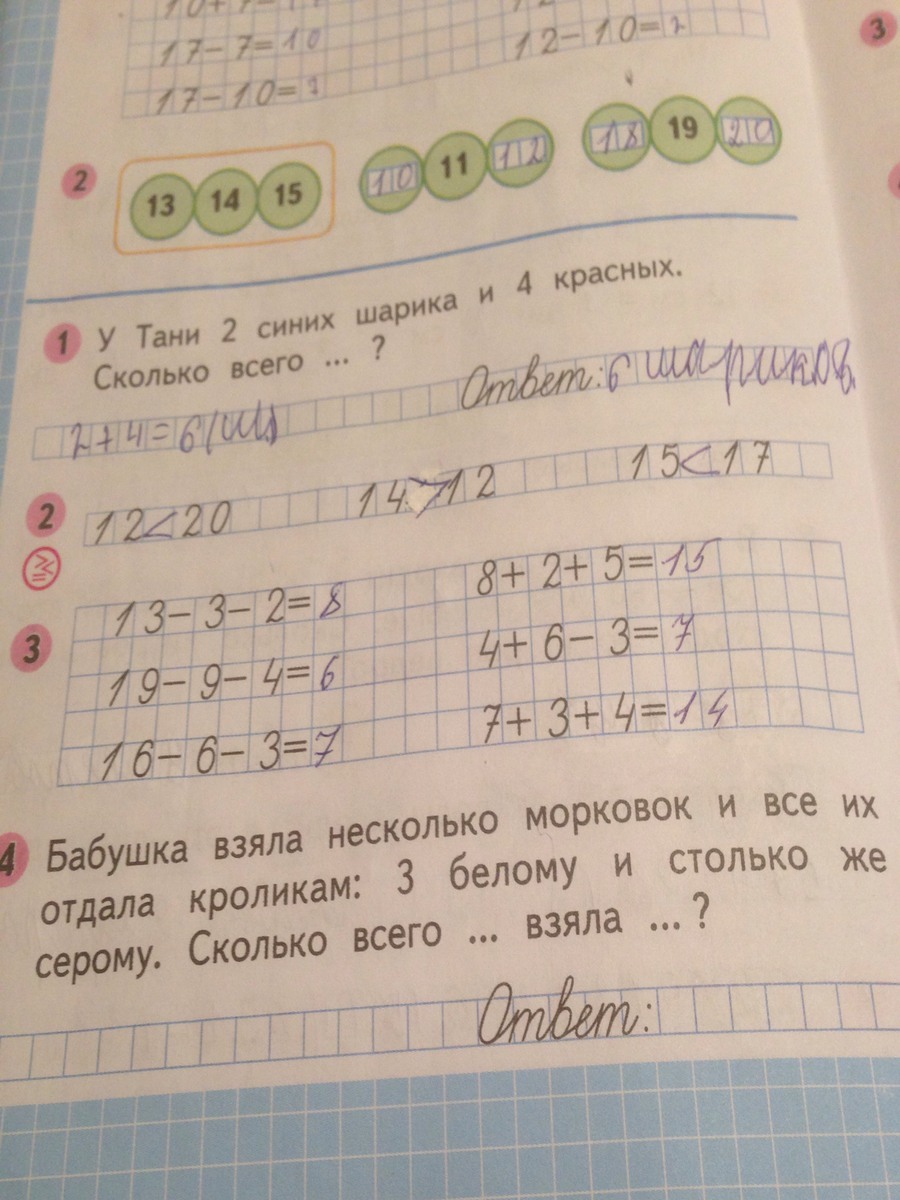 17-7=10
12-10=2
17-10=7
3
2 13 14 15 10 11 12 18 19 20
1 У Тани 2 синих шарика и 4 красных.
Сколько всего ... ?
Ответ: 6 шариков.
2+4=6(ш)
2 12<20 14>12 15<17
3 13-3-2=8 8+2+5=15
19-9-4=6 4+6-3=7
16-6-3=7 7+3+4=14
4 Бабушка взяла несколько морковок и все их
отдала кроликам: 3 белому и столько же
серому. Сколько всего ... взяла ... ?
Ответ: